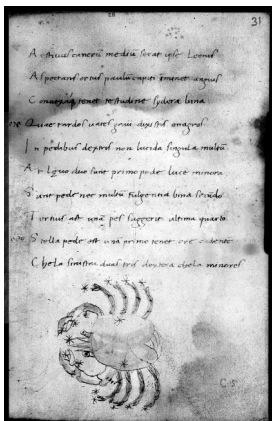 A estivus cancrū mediū secat usque Leonis
A spectans ortus paulū capiti iminet anguis
C onvexaq; tenet testudine sydera bina
Q uae tardos vates graii dixistis onagros
I n pedibus dextris non lucida singula multū
A t duo sunt primo pede luce minora
S unt pede nec multū fulgentia bina secūdo
T ertius ast unā pes suggerit ultima quarto
S tella pede est unā primo tenet ore
C hela sinistra duas tris dextera chela minores
31